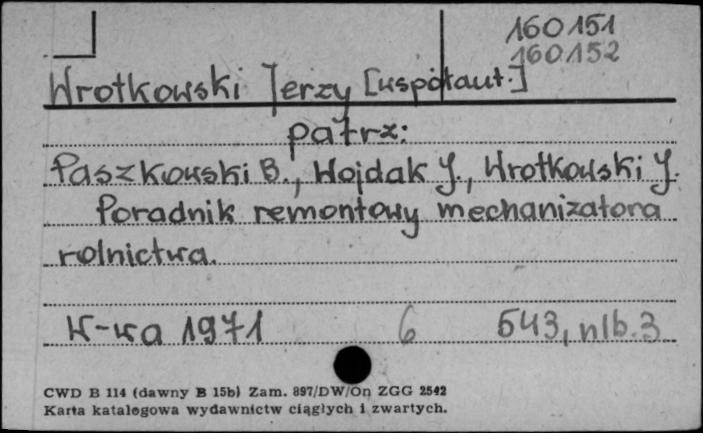 160151
160152
Wrotkowski Jerzy [współaut.]
patrz:
Paszkowski B., Wojdak J., Wrotkowski J.
Poradnik remontowy mechanizatora
rolnictwa.
W-wa 1971 6 543, nlb. 3
CWD B 114 (dawny B 15b) Zam. 897/DW/On ZGG 2542
Karta katalogowa wydawnictw ciągłych i zwartych.